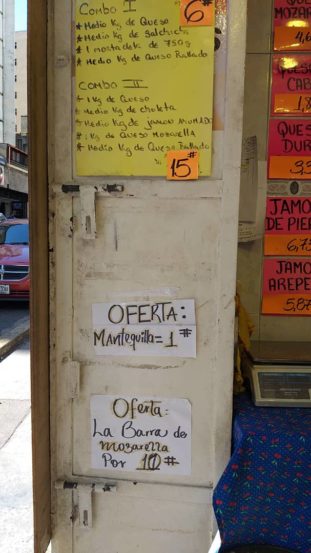 COMBO I
* Medio Kg de Queso
* Medio Kg de Salchicha
* 1 mostadela de 750g
* Medio Kg de Queso Rallado
6#
COMBO II
* 1 Kg de Queso
* Medio Kg de choleta
* Medio Kg de jamon AHUMADO
* 1 Kg de Queso MOZARELLA
* Medio Kg de Queso Rallado
15#
OFERTA:
Mantequilla = 1#
Oferta:
La Barra de
mozarella
Por 10#
MOZAR
4,6
QUES
CAB
1,8
QUES
DUR
3,3
JAMO
DE PIE
6,73
JAMO
AREPE
5,87